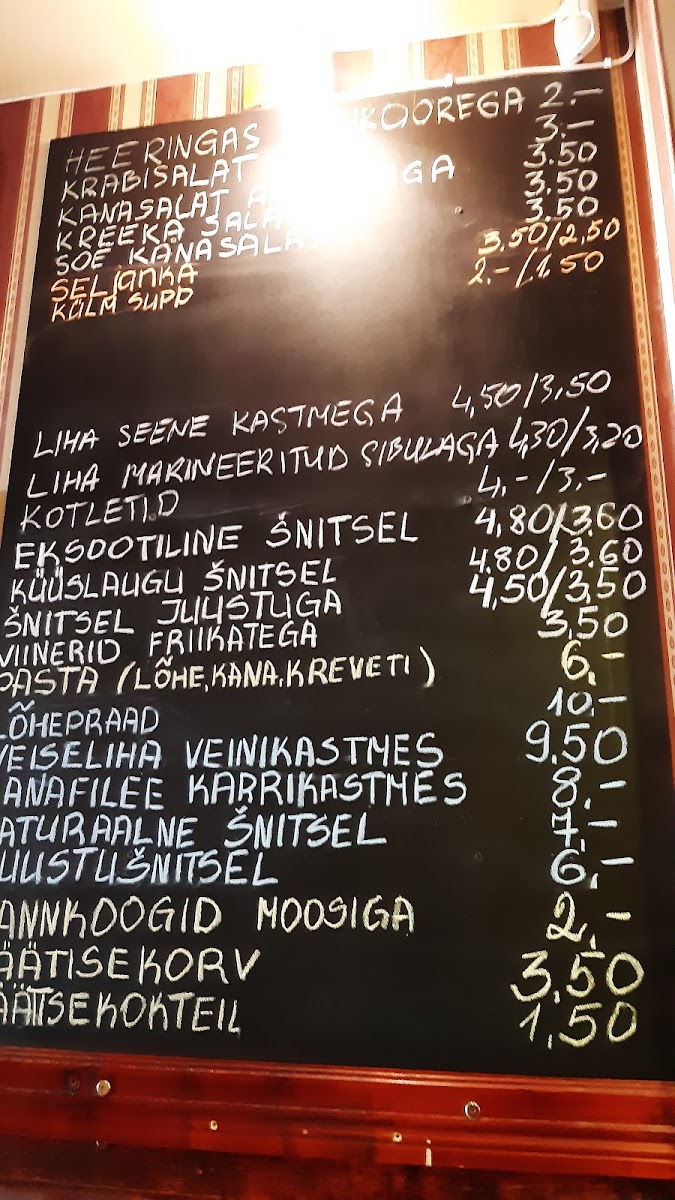 HEERINGAS KOOREGA 2.-
KRABISALAT 3.-
KANASALAT GA 3.50
KREEKA 3.50
SOE KANASALAT 3.50
SELJANKA 3.50/2,50
KÜLM SUPP 2.-/1.50
LIHA SEENE KASTMEGA 4,50/3,50
LIHA MARINEERITUD SIBULAGA 4,30/3,20
KOTLETID 4,-/3,-
EKSOOTILINE ŠNITSEL 4,80/3,60
KÜÜSLAUGU ŠNITSEL 4,80/3.60
ŠNITSEL JUUSTUGA 4,50/3,50
VIINERID FRIIKATEGA 3,50
PASTA (LÕHE, KANA, KREVETI) 6,-
LÕHEPRAAD 10,-
VEISELIHA VEINIKASTMES 9,50
ANAFILEE KARRIKASTMES 8,-
ATURAALNE ŠNITSEL 7,-
UUSTUŠNITSEL 6,-
ANNKOOGID MOOSIGA 2,-
ÄÄTISEKORV 3,50
ÄÄTISEKOKTEIL 1,50